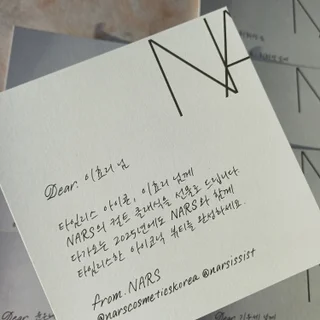 NARS
Dear. 이효리 님
타임리스 아이콘, 이효리 님께
NARS의 컬트 클래식을 선물로 드립니다.
다가오는 2025년에도 NARS와 함께
타임리스한 아이코닉 뷰티를 완성하세요.
from. NARS
@narscosmeticskorea @narsissist
Dear.